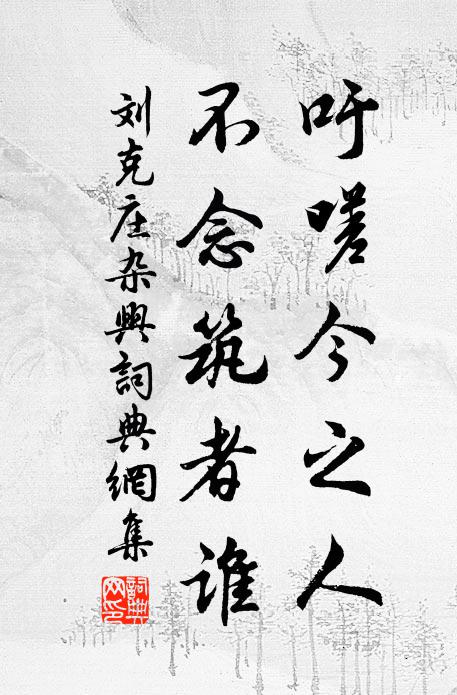 吁嗟今之人
不念筑者谁
刘克庄杂興詞典網集
詞典